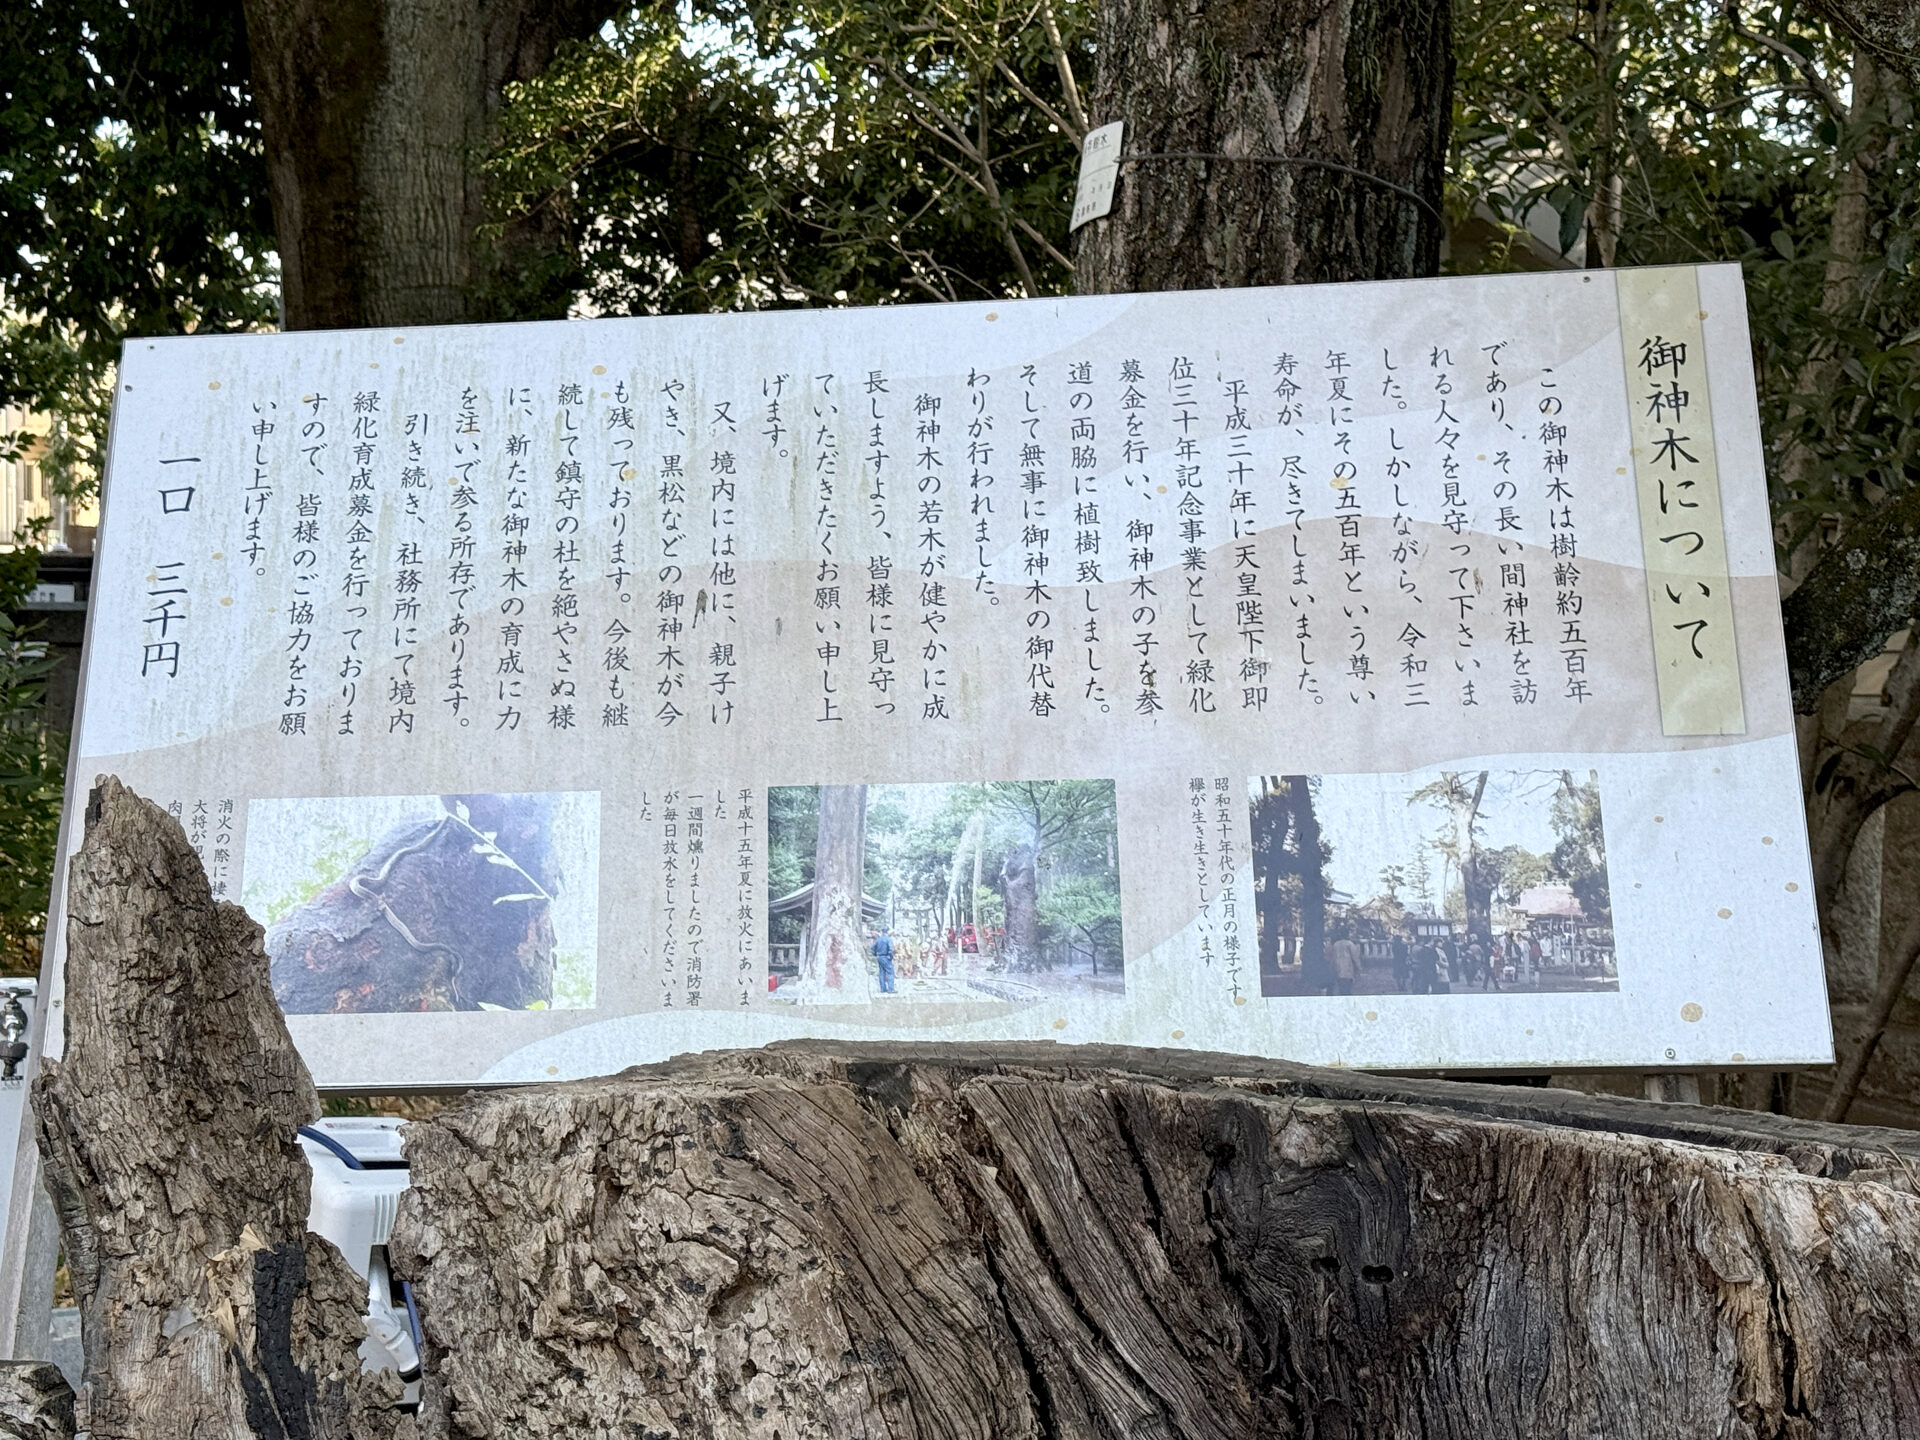 御神木について
この御神木は樹齢約五百年
であり、その長い間神社を訪
れる人々を見守って下さいま
した。しかしながら、令和三
年夏にその五百年という尊い
寿命が、尽きてしまいました。
平成三十年に天皇陛下御即
位三十年記念事業として緑化
募金を行い、御神木の子を参
道の両脇に植樹致しました。
そして無事に御神木の御代替
わりが行われました。
御神木の若木が健やかに成
長しますよう、皆様に見守っ
ていただきたくお願い申し上
げます。
又、境内には他に、親子け
やき、黒松などの御神木が今
も残っております。今後も継
続して鎮守の杜を絶やさぬ様
に、新たな御神木の育成に力
を注いで参る所存であります。
引き続き、社務所にて境内
緑化育成募金を行っておりま
すので、皆様のご協力をお願
い申し上げます。
一口 三千円
昭和五十年代の正月の様子です
欅が生き生きとしています
平成十五年夏に放火にあいま
した
一週間燻りましたので消防署
が毎日放水をしてくださいま
した
消火の際に棲
大将が
肉